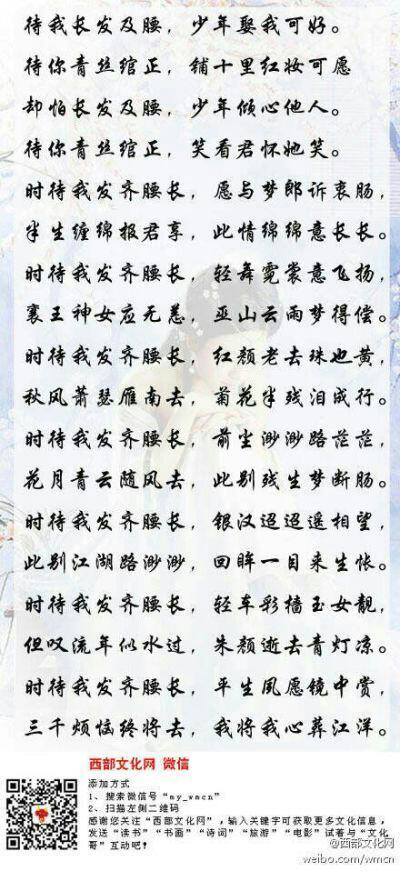 待我长发及腰，少年娶我可好。
待你青丝绾正，铺十里红妆可愿
却怕长发及腰，少年倾心他人。
待你青丝绾正，笑看君怀她笑。
时待我发齐腰长，愿与梦郎诉衷肠，
半生缠绵报君享，此情绵绵意长长。
时待我发齐腰长，轻舞霓裳意飞扬，
襄王神女应无恙，巫山云雨梦得偿。
时待我发齐腰长，红颜老去珠也黄，
秋风萧瑟雁南去，菊花半残泪成行。
时待我发齐腰长，前尘渺渺路茫茫，
花月青云随风去，此别残生梦断肠。
时待我发齐腰长，银汉迢迢遥相望，
此别江湖路渺渺，回眸一目来生怅。
时待我发齐腰长，轻车彩樯玉女靓，
但叹流年似水过，朱颜逝去青灯凉。
时待我发齐腰长，平生夙愿镜中赏，
三千烦恼终将去，我将我心葬江洋。
西部文化网 微信
添加方式
1、搜索微信号“my_wmcn”
2、扫描左侧二维码
感谢您关注“西部文化网”，输入关键字可获取更多文化信息，
发送“读书”“书画”“诗词”“旅游”“电影”试著与“文化
哥”互动吧！
@西部文化网
weibo.com/wmcn